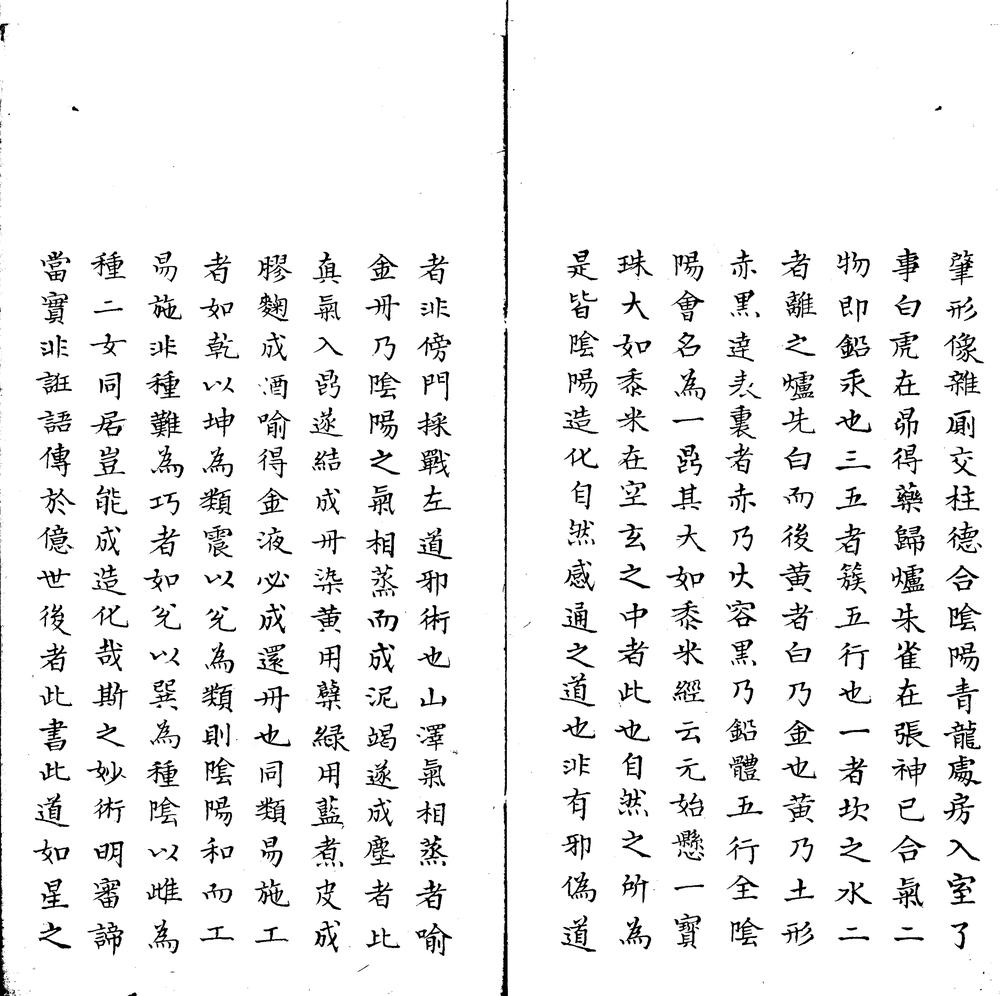 肇形像雜厠交柱德合隂陽青龍處房入室了
事白虎在昴得藥歸爐朱雀在張神已合氣二
物即鉛汞也三五者簇五行也一者坎之水二
者離之爐先白而後黄者白乃金也黄乃土形
赤黑達表裏者赤乃火容黒乃鉛體五行全隂
陽會名為一鼎其大如黍米經云元始懸一寳
珠大如黍米在空玄之中者此也自然之所為
是皆隂陽造化自然感通之道也非有邪偽道
者非傍門採戰左道邪術也山澤氣相蒸者喻
金丹乃隂陽之氣相蒸而成泥竭遂成塵者此
真氣入鼎遂結成丹染黄用蘖緑用藍煮皮成
膠麴成酒喻得金液必成還丹也同類易施工
者如乾以坤為類震以兊為類則隂陽和而工
易施非種難為巧者如兊以巽為種隂以雌為
種二女同居豈能成造化哉斯之妙術明審諦
當實非誑語傳於億世後者此書此道如星之